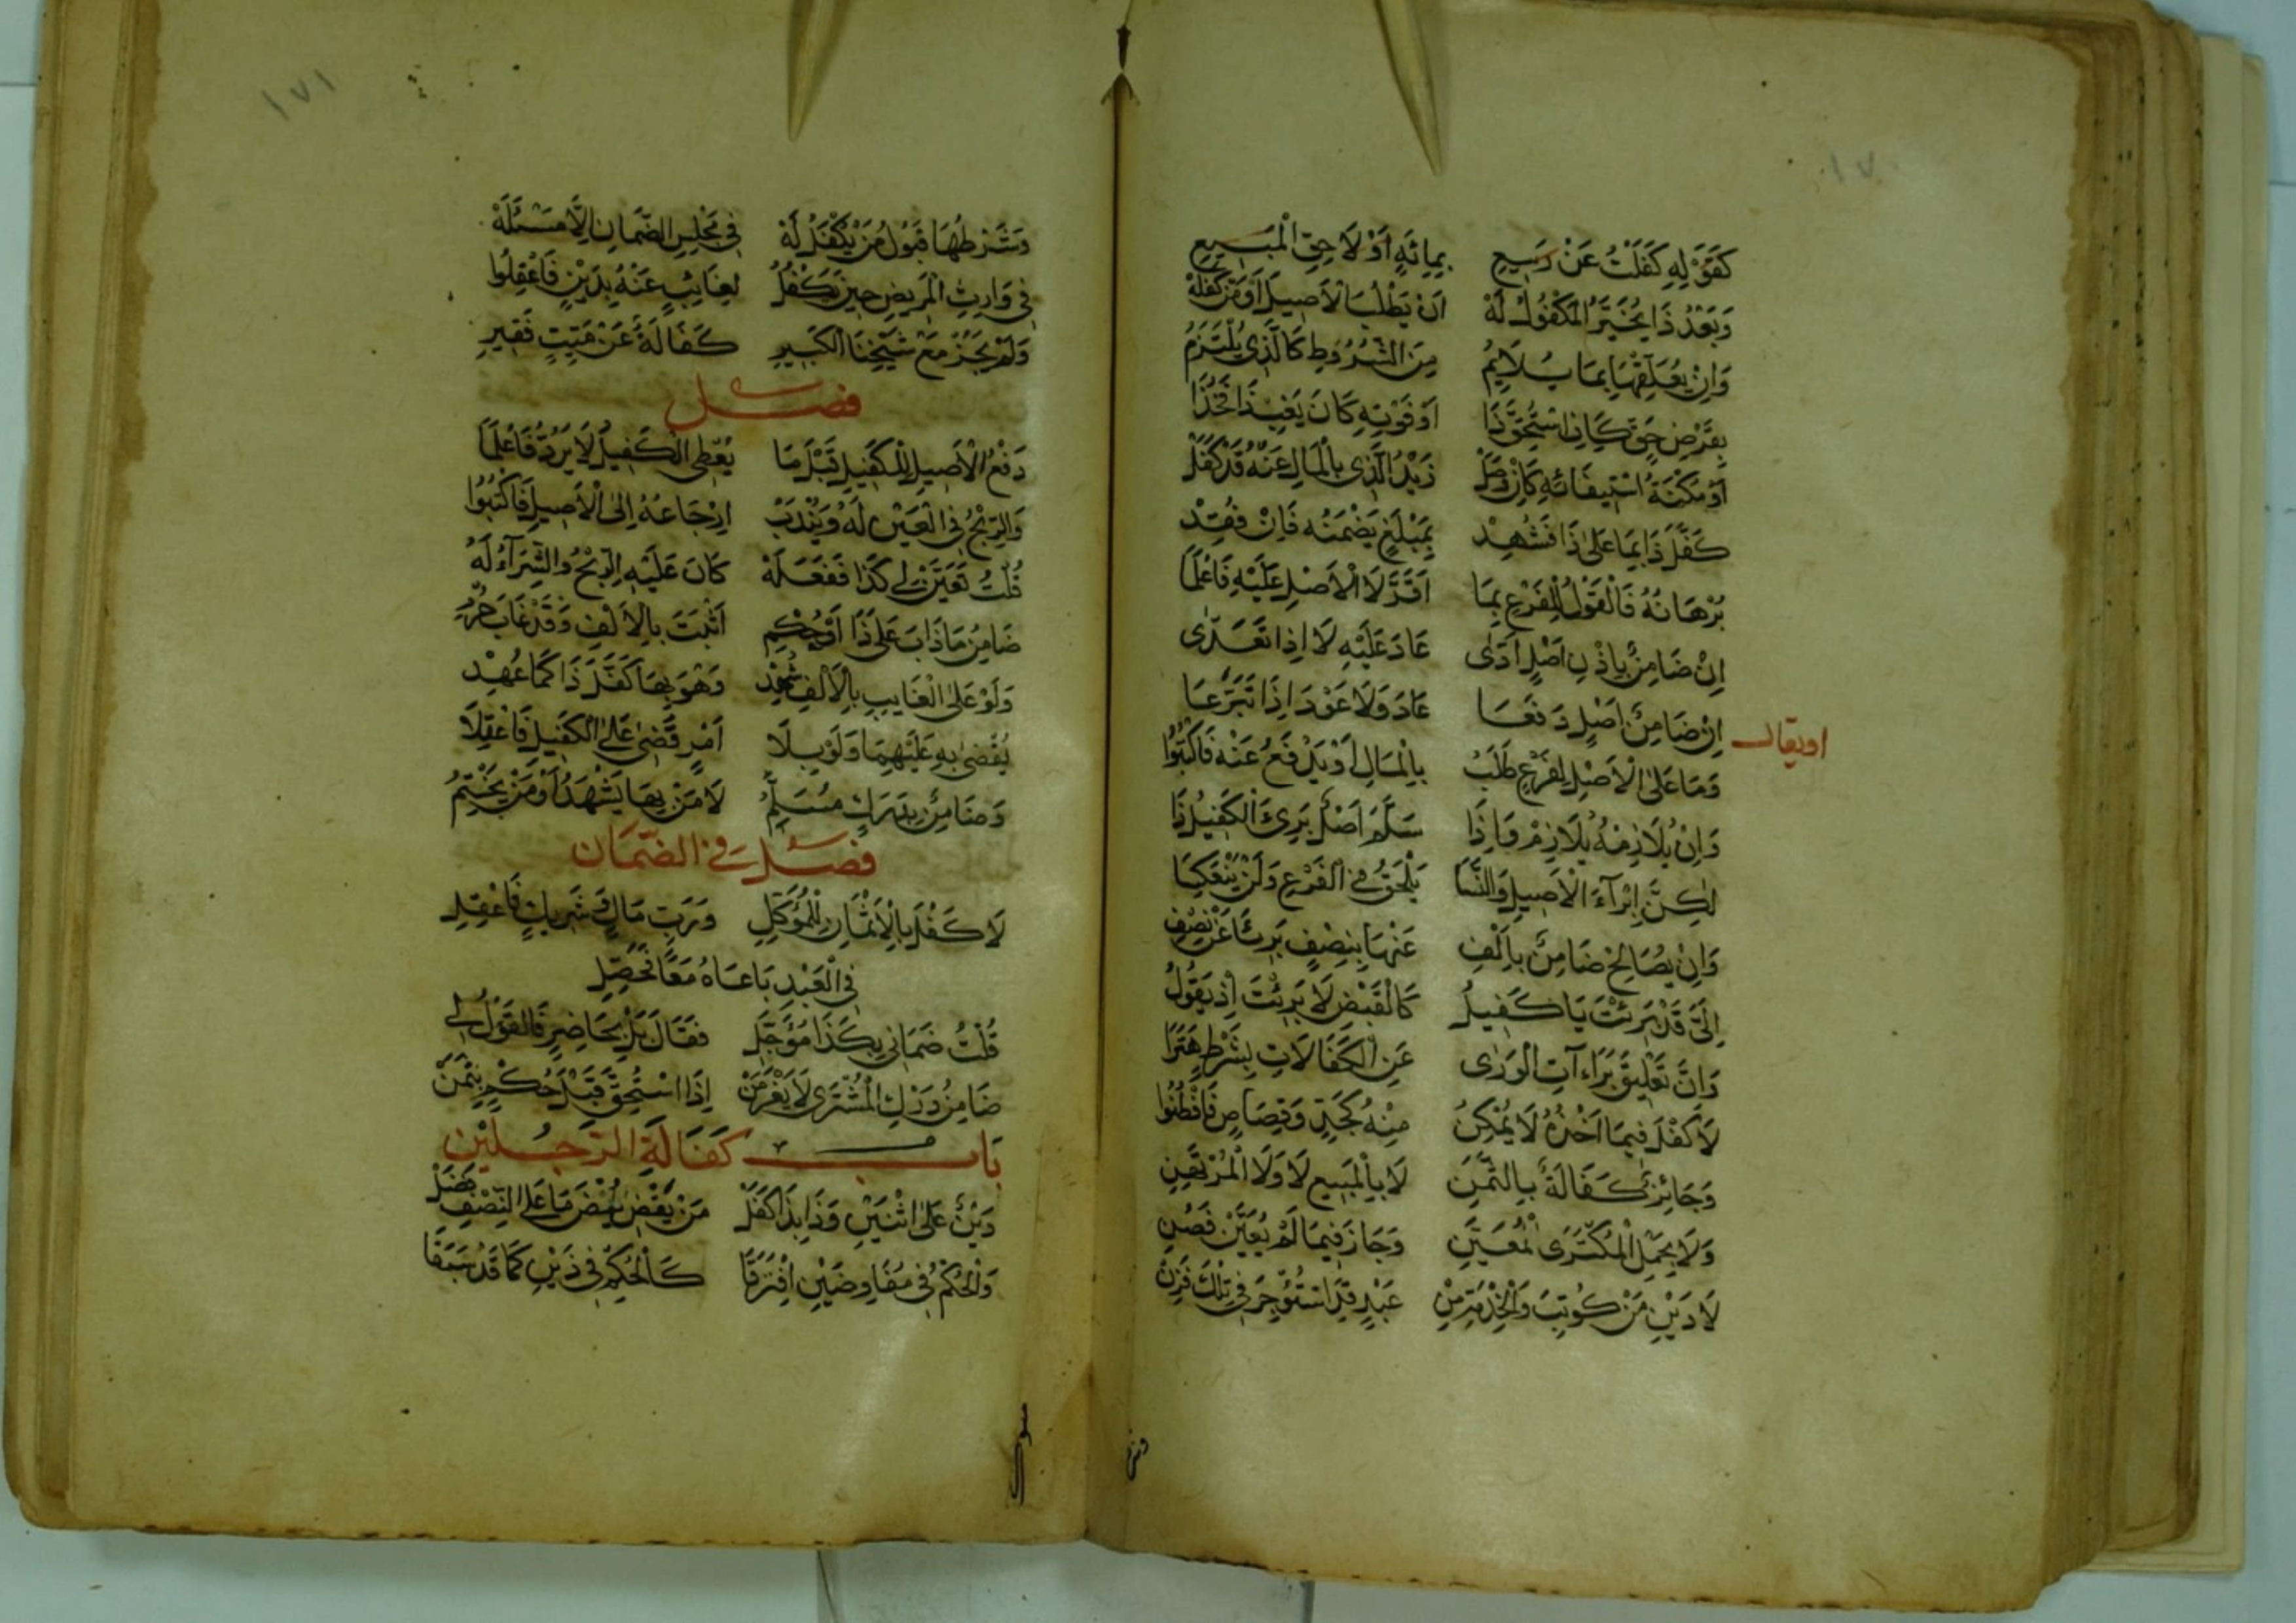 ١٧٠
كَفَوْلِهِ كَفَلْتُ عَنْ رَبِيعِ بِمِائَةٍ أَوْ لَاحِقِ الْمَبِيعِ
وَبَعْدُ ذَا يُخَيَّرُ الْمَكْفُولُ لَهْ أَنْ يَطْلُبَ الْأَصِيلَ أَوْ مَنْ كَفَلَهْ
وَإِنْ يُعَلِّقْهَا بِمَا يُلَايِمُ مِنَ الشُّرُوطِ كَالَّذِي يُلْتَزَمُ
بِفَرْضِ حَقٍّ كَإِذَا اسْتَحَقَّ ذَا أَوْ فَوْتِهِ كَانَ يَغِيبُ ذَا فَخُذَا
أَوْ مُكْنَةُ اسْتِيفَائِهِ كَإِنْ وَصَلْ زَيْدُ الَّذِي بِالْمَالِ عَنْهُ قَدْ كَفَلْ
كَفَلَ ذَا بِمَا عَلَى ذَا فَشُهِدْ بِمَبْلَغٍ يَضْمَنُهُ فَإِنْ فُقِدْ
بُرْهَانُهُ فَالْقَوْلُ لِلْفَرْعِ بِمَا أَقَرَّ لَا الْأَصْلِ عَلَيْهِ فَاعْلَمَا
إِنْ ضَامِنٌ بِإِذْنِ أَصْلٍ أَدَّى عَادَ عَلَيْهِ لَا إِذَا تَعَدَّى
إِنْ ضَامِنٌ أَصْلٍ دَفَعَا عَادَ وَلَا عَوْدَ إِذَا تَبَرَّعَا
او يقال
وَمَا عَلَى الْأَصْلِ لِفَرْعٍ طَلَبُ بِالْمَالِ أَوْ يَدْفَعُ عَنْهُ فَاكْتُبُوا
وَإِنْ يُلَازِمْهُ يُلَازِمْ وَإِذَا سَلَّمَ أَصْلٌ بَرِئَ الْكَفِيلُ ذَا
لَكِنَّ إِبْرَاءَ الْأَصِيلِ وَالنَّسَا يَلْحَقُ فِي الْفَرْعِ وَلَنْ يَنْعَكِسَا
وَإِنْ يُصَالِحْ ضَامِنٌ بِأَلْفِ عَنْهَا بِنِصْفٍ بَرِئَا عَنْ نِصْفِ
إِلَيَّ قَدْ بَرِئْتَ يَا كَفِيلُ كَالْقَبْضِ لَا بَرِئْتَ إِذْ يَقُولُ
وَإِنَّ تَعْلِيقَ بَرَاءَاتِ الْوَرَى عَنِ الْكَفَالَاتِ بِشَرْطٍ هَتَرَا
لَا كَفْلَ فِيمَا أَخْذُهُ لَا يُمْكِنُ مِنْهُ كَحَدٍّ وَقِصَاصٍ فَافْطُنُوا
وَجَائِزٌ كَفَالَةٌ بِالثَّمَنِ لَا بِالْمَبِيعِ لَا وَلَا الْمُرْتَهَنِ
وَلَا بِحَمْلِ الْمُكْتَرَى الْمُعَيَّنِ وَجَازَ فِيمَا لَمْ يُعَيَّنْ فَصُنِ
لَا دَيْنِ مَنْ كُوتِبَ وَالْخِدْمَةِ مِنْ عَبْدٍ قَدِ اسْتُؤْجِرَ فِي تِلْكَ فَزِنْ
١٧١
وَشَرْطُهَا قَبُولُ مَنْ يُكْفَلُ لَهْ فِي مَجْلِسِ الضَّمَانِ إِلَّا مَسْئَلَهْ
فِي وَارِثِ الْمَرِيضِ حِينَ يَكْفُلُ لِغَايِبٍ عَنْهُ بِدَيْنٍ فَاعْقِلُوا
وَلَمْ يَجُزْ مَعْ شَيْخِنَا الْكَبِيرِ كَفَالَةٌ عَنْ مَيِّتٍ فَقِيرِ
فصل
دَفْعُ الْأَصِيلِ لِلْكَفِيلِ قَبْلَ مَا يُعْطِي الْكَفِيلُ لَا يَرُدُّ فَاعْلَمَا
وَالرِّبْحُ فِي الْعَيْنِ لَهُ وَيُنْدَبُ إِرْجَاعُهُ إِلَى الْأَصِيلِ فَاكْتُبُوا
قُلْتُ تَعَيَّنْ لِي كَذَا فَفَعَلَهْ كَانَ عَلَيْهِ الرِّبْحُ وَالشِّرَاءُ لَهُ
ضَامِنُ مَا ذَابَ عَلَى ذَا أَوْ حُكِمْ أَثْبَتَ بِالْأَلْفِ وَقَدْ غَابَ
وَلَوْ عَلَى الْغَايِبِ بِالْأَلْفِ شُهِدْ وَهْوَ بِهَا كَفَّلَ ذَا كَمَا عُهِدْ
يُقْضَى بِهِ عَلَيْهِمَا وَلَوْ بِلَا أَمْرٍ قَضَى عَلَى الْكَفِيلِ فَاعْقِلَا
وَضَامِنٌ بِدَرَكٍ مُسَلِّمُ لَا مَنْ بِهَا يَشْهَدُ أَوْ مَنْ يَخْتِمُ
فصل في الضمان
لَا كَفْلَ بِالْأَثْمَانِ لِلْمُوَكِّلِ وَرَبِّ مَالٍ وَشَرِيكٍ فَاعْقِلِ
فِي الْعَبْدِ بَاعَاهُ مَعًا فَحَصِّلِ
قُلْتُ ضَمَانِي بِكَذَا مُؤَجَّلِ فَقَالَ بَلْ بِحَاضِرٍ فَالْقَوْلُ لِي
ضَامِنُ دَرْكِ الْمُشْتَرَى لَا يَغْرَمَنْ إِذَا اسْتُحِقَّ قَبْلَ حُكْمٍ بِثَمَنْ
باب كفالة الرجلين
دَيْنٌ عَلَى اثْنَيْنِ وَذَا بِذَا كَفَلْ مَنْ يَقْضِ بَعْضَ مَا عَلَى النِّصْفِ فَضَلْ
وَالْحُكْمُ فِي مُفَاوِضَيْنِ افْتَرَقَا كَالْحُكْمِ فِي ذَيْنِ كَمَا قَدْ سَبَقَا